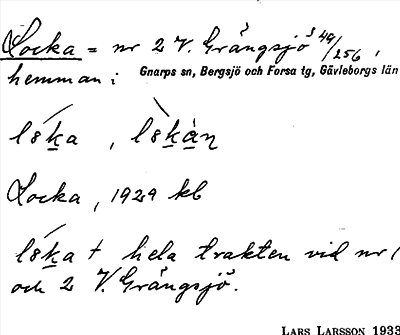 Locka = nr 2 V. Grängsjö 3 49/256,
hemman i Gnarps sn, Bergsjö och Forsa tg, Gävleborgs län
lö́ka, lö̀kàn
Locka, 1929 kb
lö́ka + hela trakten vid nr 1
och 2 V. Grängsjö.
LARS LARSSON 1933